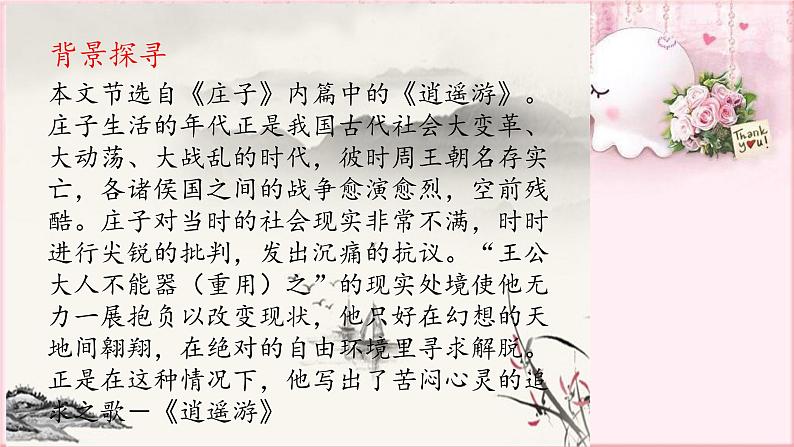 背景探寻
本文节选自《庄子》内篇中的《逍遥游》。
庄子生活的年代正是我国古代社会大变革、
大动荡、大战乱的时代，彼时周王朝名存实
亡，各诸侯国之间的战争愈演愈烈，空前残
酷。庄子对当时的社会现实非常不满，时时
进行尖锐的批判，发出沉痛的抗议。“王公
大人不能器（重用）之”的现实处境使他无
力一展抱负以改变现状，他只好在幻想的天
地间翱翔，在绝对的自由环境里寻求解脱。
正是在这种情况下，他写出了苦闷心灵的追
求之歌－《逍遥游》
Thank
you!